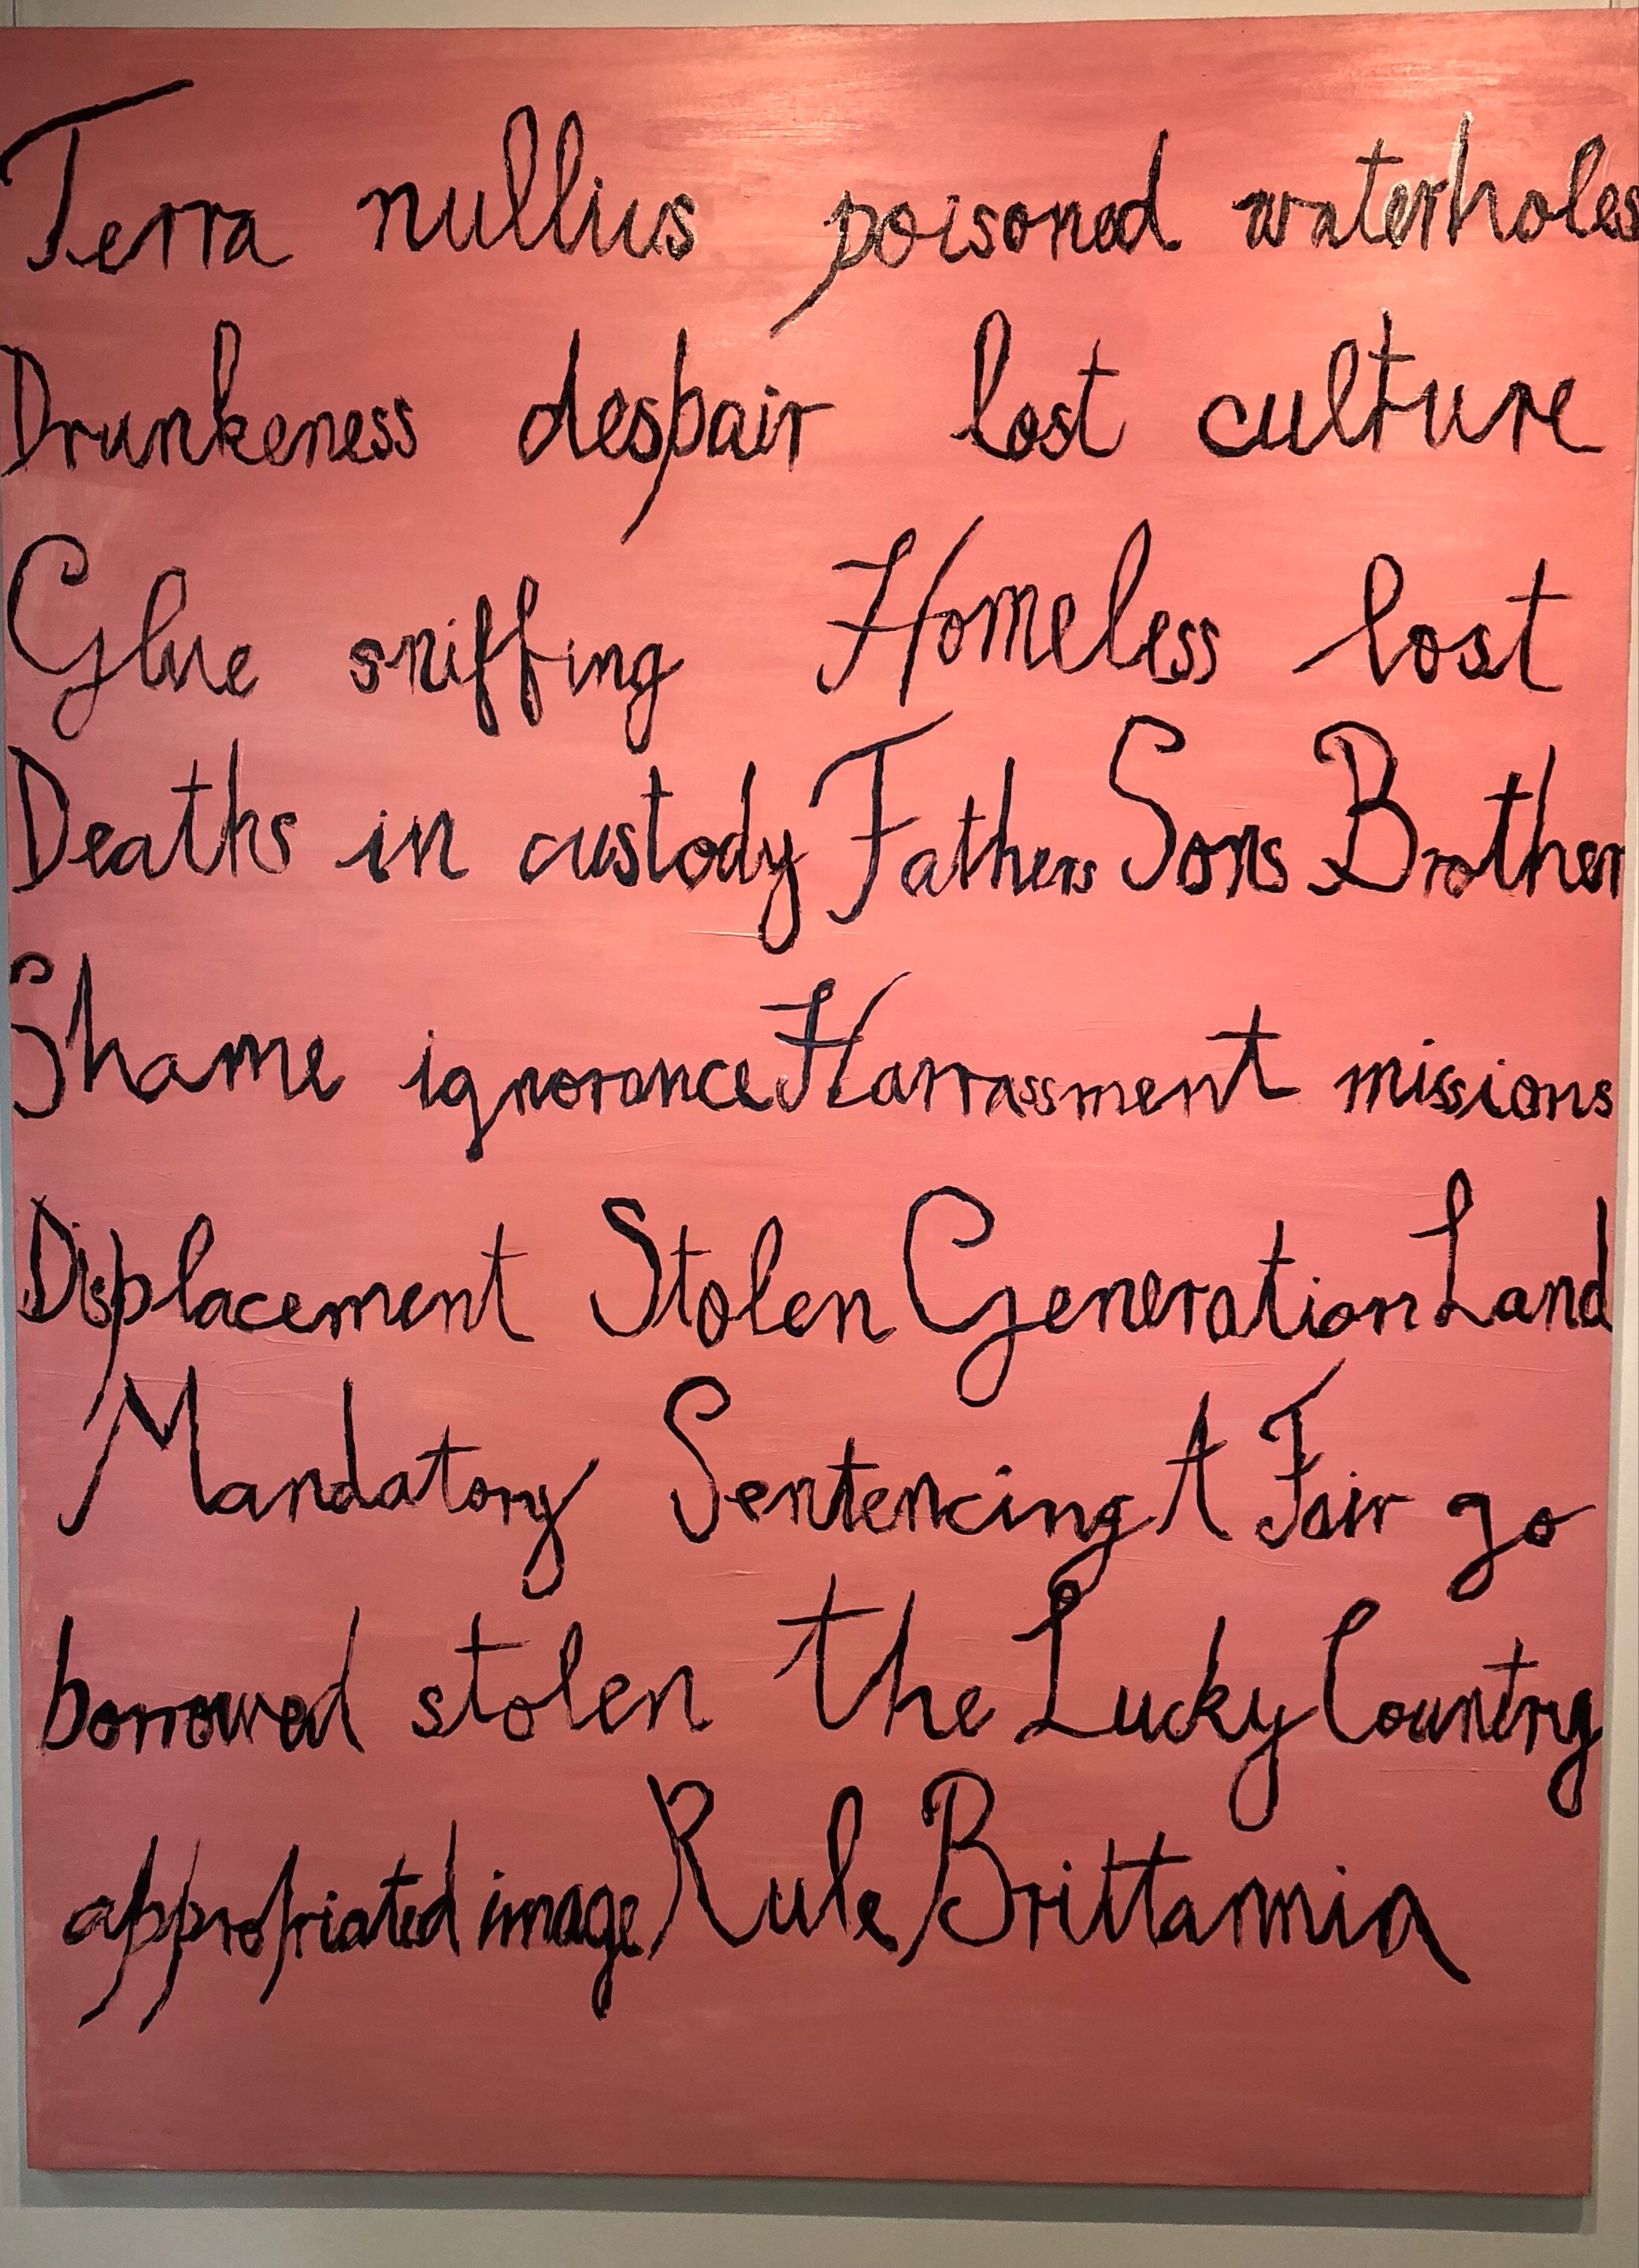 Terra nullius poisoned waterholes
Drunkeness despair lost culture
Glue sniffing Homeless lost
Deaths in custody Fathers Sons Brother
Shame ignorance Harrassment missions
Displacement Stolen Generation Land
Mandatory Sentencing A Fair go
borrowed stolen the Lucky Country
appropriated image Rule Brittannia